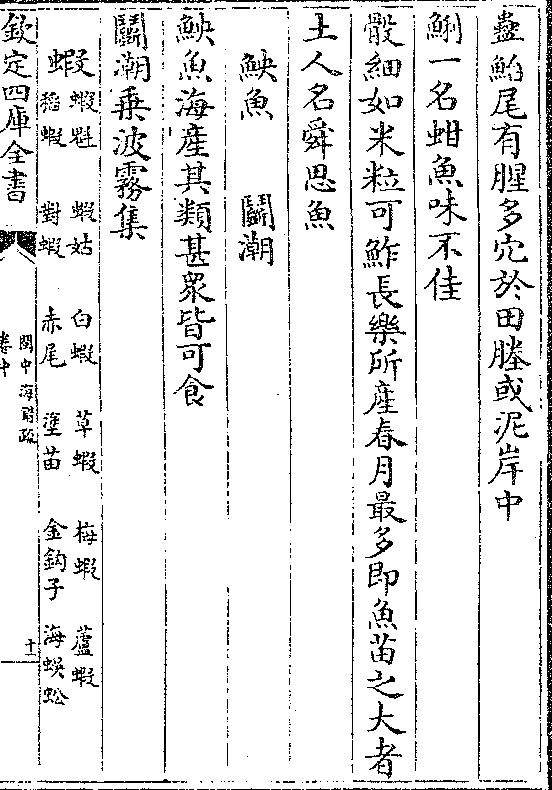 盎鮐尾有腥多穴於田塍或泥岸中
鯏一名蚶魚味不佳
骰細如米粒可鮓長樂所産春月最多即魚苗之大者
土人名舜思魚
鉠魚　鬭潮
鉠魚海産其類甚衆皆可食
鬭潮乘波霧集
蝦　蝦魁　蝦姑　白蝦　草蝦　梅蝦　蘆蝦
稻蝦　對蝦　赤尾　塗苗　金鈎子　海蜈蚣
欽定四庫全書
閩中海錯疏
卷中
十一